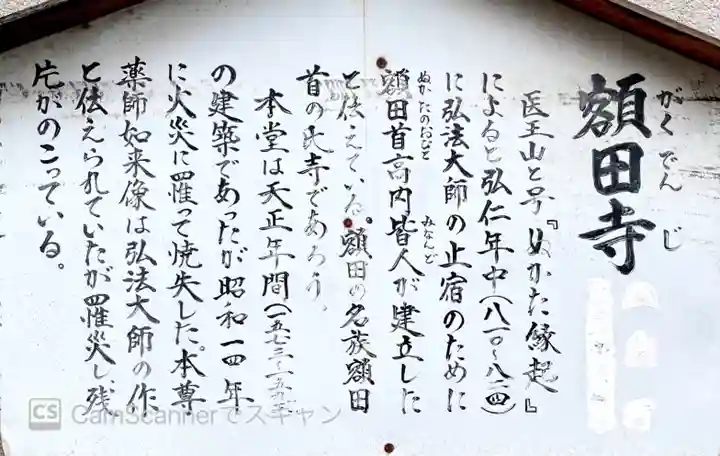 額田寺
がくでんじ
医王山と号『ぬかた縁起』
によると弘仁年中(八一〇〜八二四)
に弘法大師の止宿のために
額田首高内皆人が建立した
ぬかたのおびと
みなんど
と伝えている。額田の名族額田
首の氏寺であろう。
本堂は天正年間(一五七三〜一五九
の建築であったが昭和一四年
に火災に罹って焼失した。本尊
薬師如来像は弘法大師の作
と伝えられていたが罹災し、残
片がのこっている。
CS CamScannerでスキャン